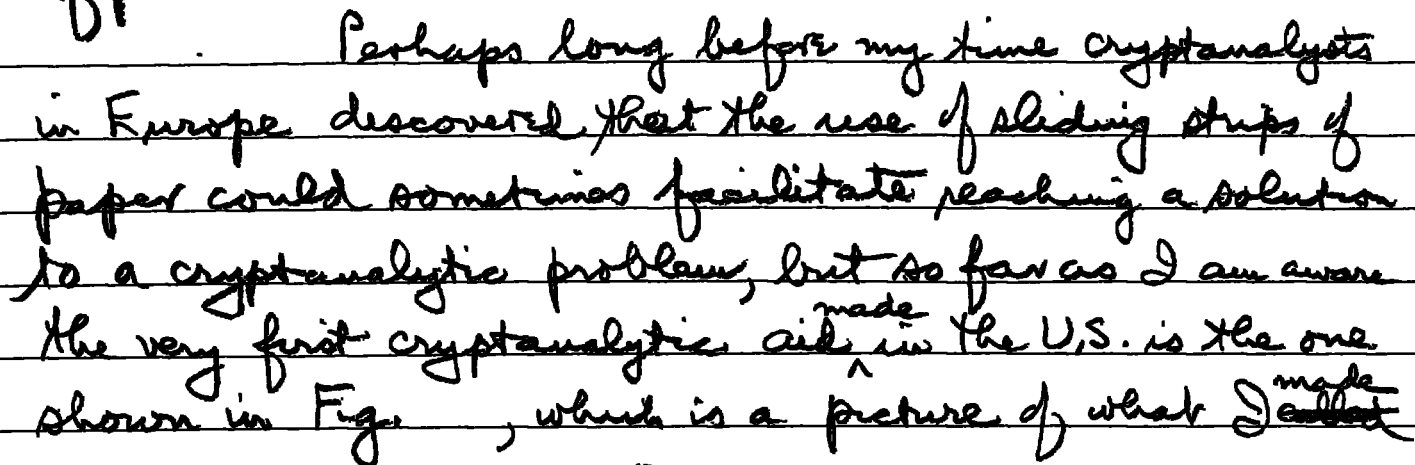 Perhaps long before my time cryptanalysts
in Europe discovered that the use of sliding strips of
paper could sometimes facilitate reaching a solution
to a cryptanalytic problem, but so far as I am aware
the very first cryptanalytic aid made in the U.S. is the one
shown in Fig. , which is a picture of what I made